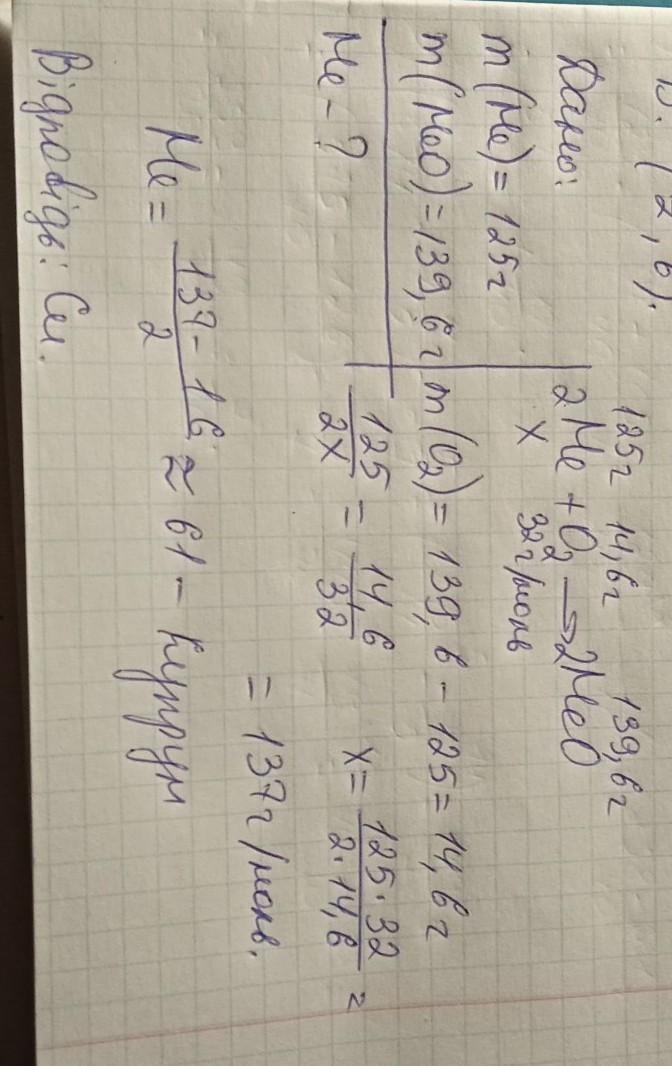 Дано:
m(Me) = 125г
m(MeO) = 139,6г
Me - ?
125г 14,6г 139,6г
2Me + O2 → 2MeO
x 32г/моль
m(O2) = 139,6 - 125 = 14,6г
125/2x = 14,6/32 x = 125·32/2·14,6 =
= 137г/моль.
Me = 137-16/2 ≈ 61 - Купрум
Відповідь: Cu.